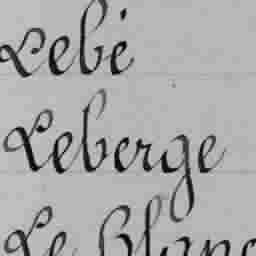 Lebé
Leberge
Le Blanc